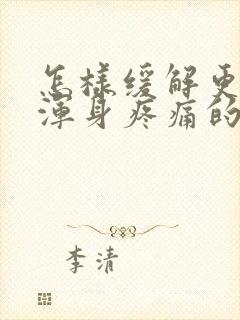 怎樣緩解更
渾身疼痛的
李清